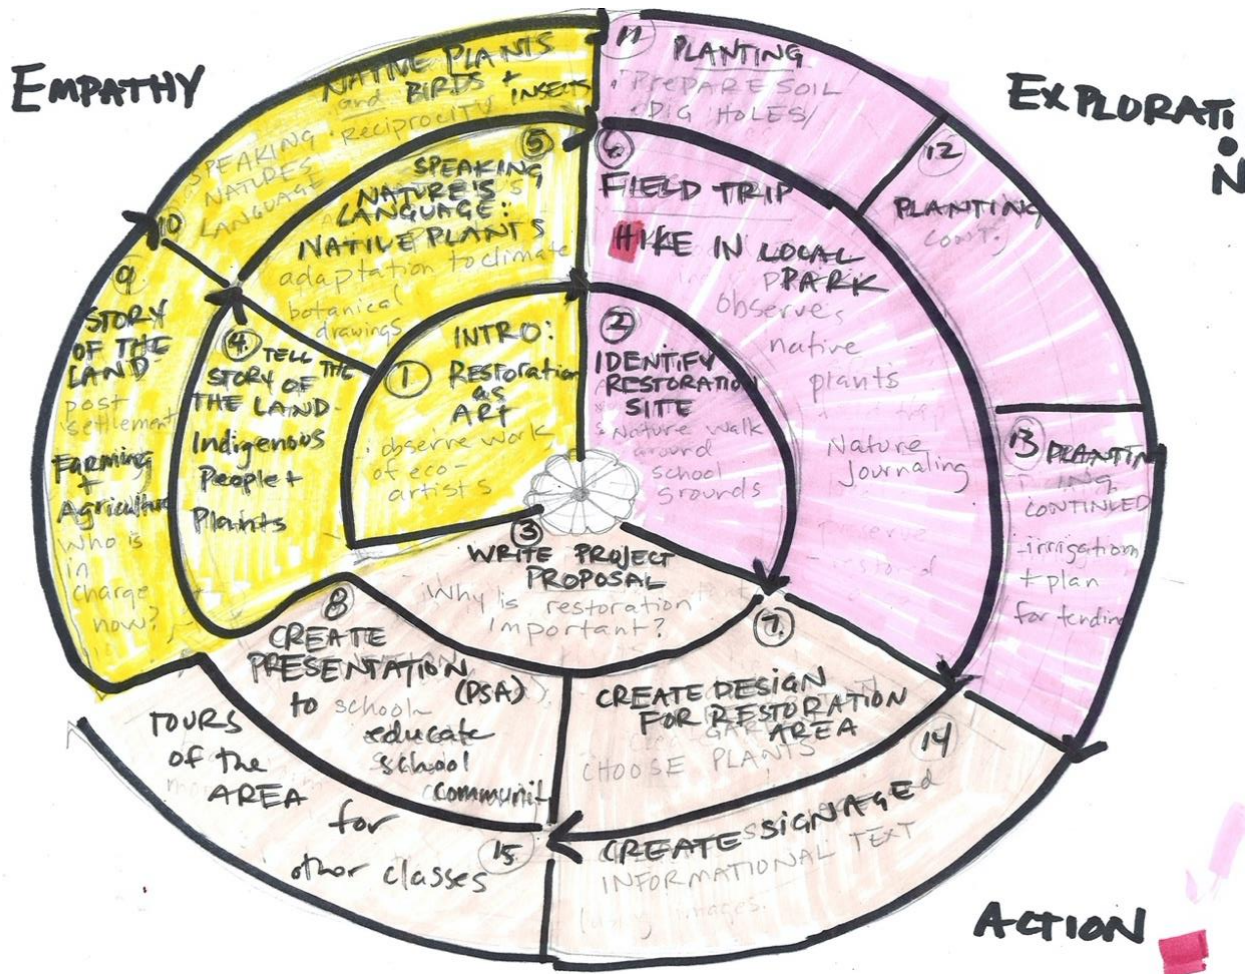 EMPATHY
EXPLORATION
ACTION
①
INTRO:
Restoration
as
ART
: observe work
of eco-
artists
②
IDENTIFY
RESTORATION
SITE
Nature walk
around
school
grounds
③
WRITE PROJECT
PROPOSAL
Why is
restoration
important?
④ TELL THE
STORY OF
THE LAND.
Indigenous
People +
Plants
⑤
SPEAKING
NATURE'S
LANGUAGE:
NATIVE PLANTS
adaptation to climate
botanical
drawings
6.
FIELD TRIP
HIKE IN LOCAL
PARK
observe
native
plants
Nature
Journaling
7.
CREATE DESIGN
FOR RESTORATION
AREA
CHOOSE PLANTS
8
CREATE
PRESENTATION
(PSA)
to school
educate
school
communit
9
STORY
OF THE
LAND
post
settlement
Farming
+
Agriculture
Who is
in
charge
now?
10
SPEAKING
NATURES
LANGUAGE
NATIVE PLANTS
and BIRDS + INSECTS
Reciprocity
11
PLANTING
: PREPARE SOIL
DIG HOLES/
12
PLANTING
CONT.
13 PLANTIN
ING
CONTINUED
- irrigation
+ plan
for tending
14
CREATE SIGNAGE
INFORMATIONAL TEXT
images.
15
TOURS
OF the
AREA
for
other classes